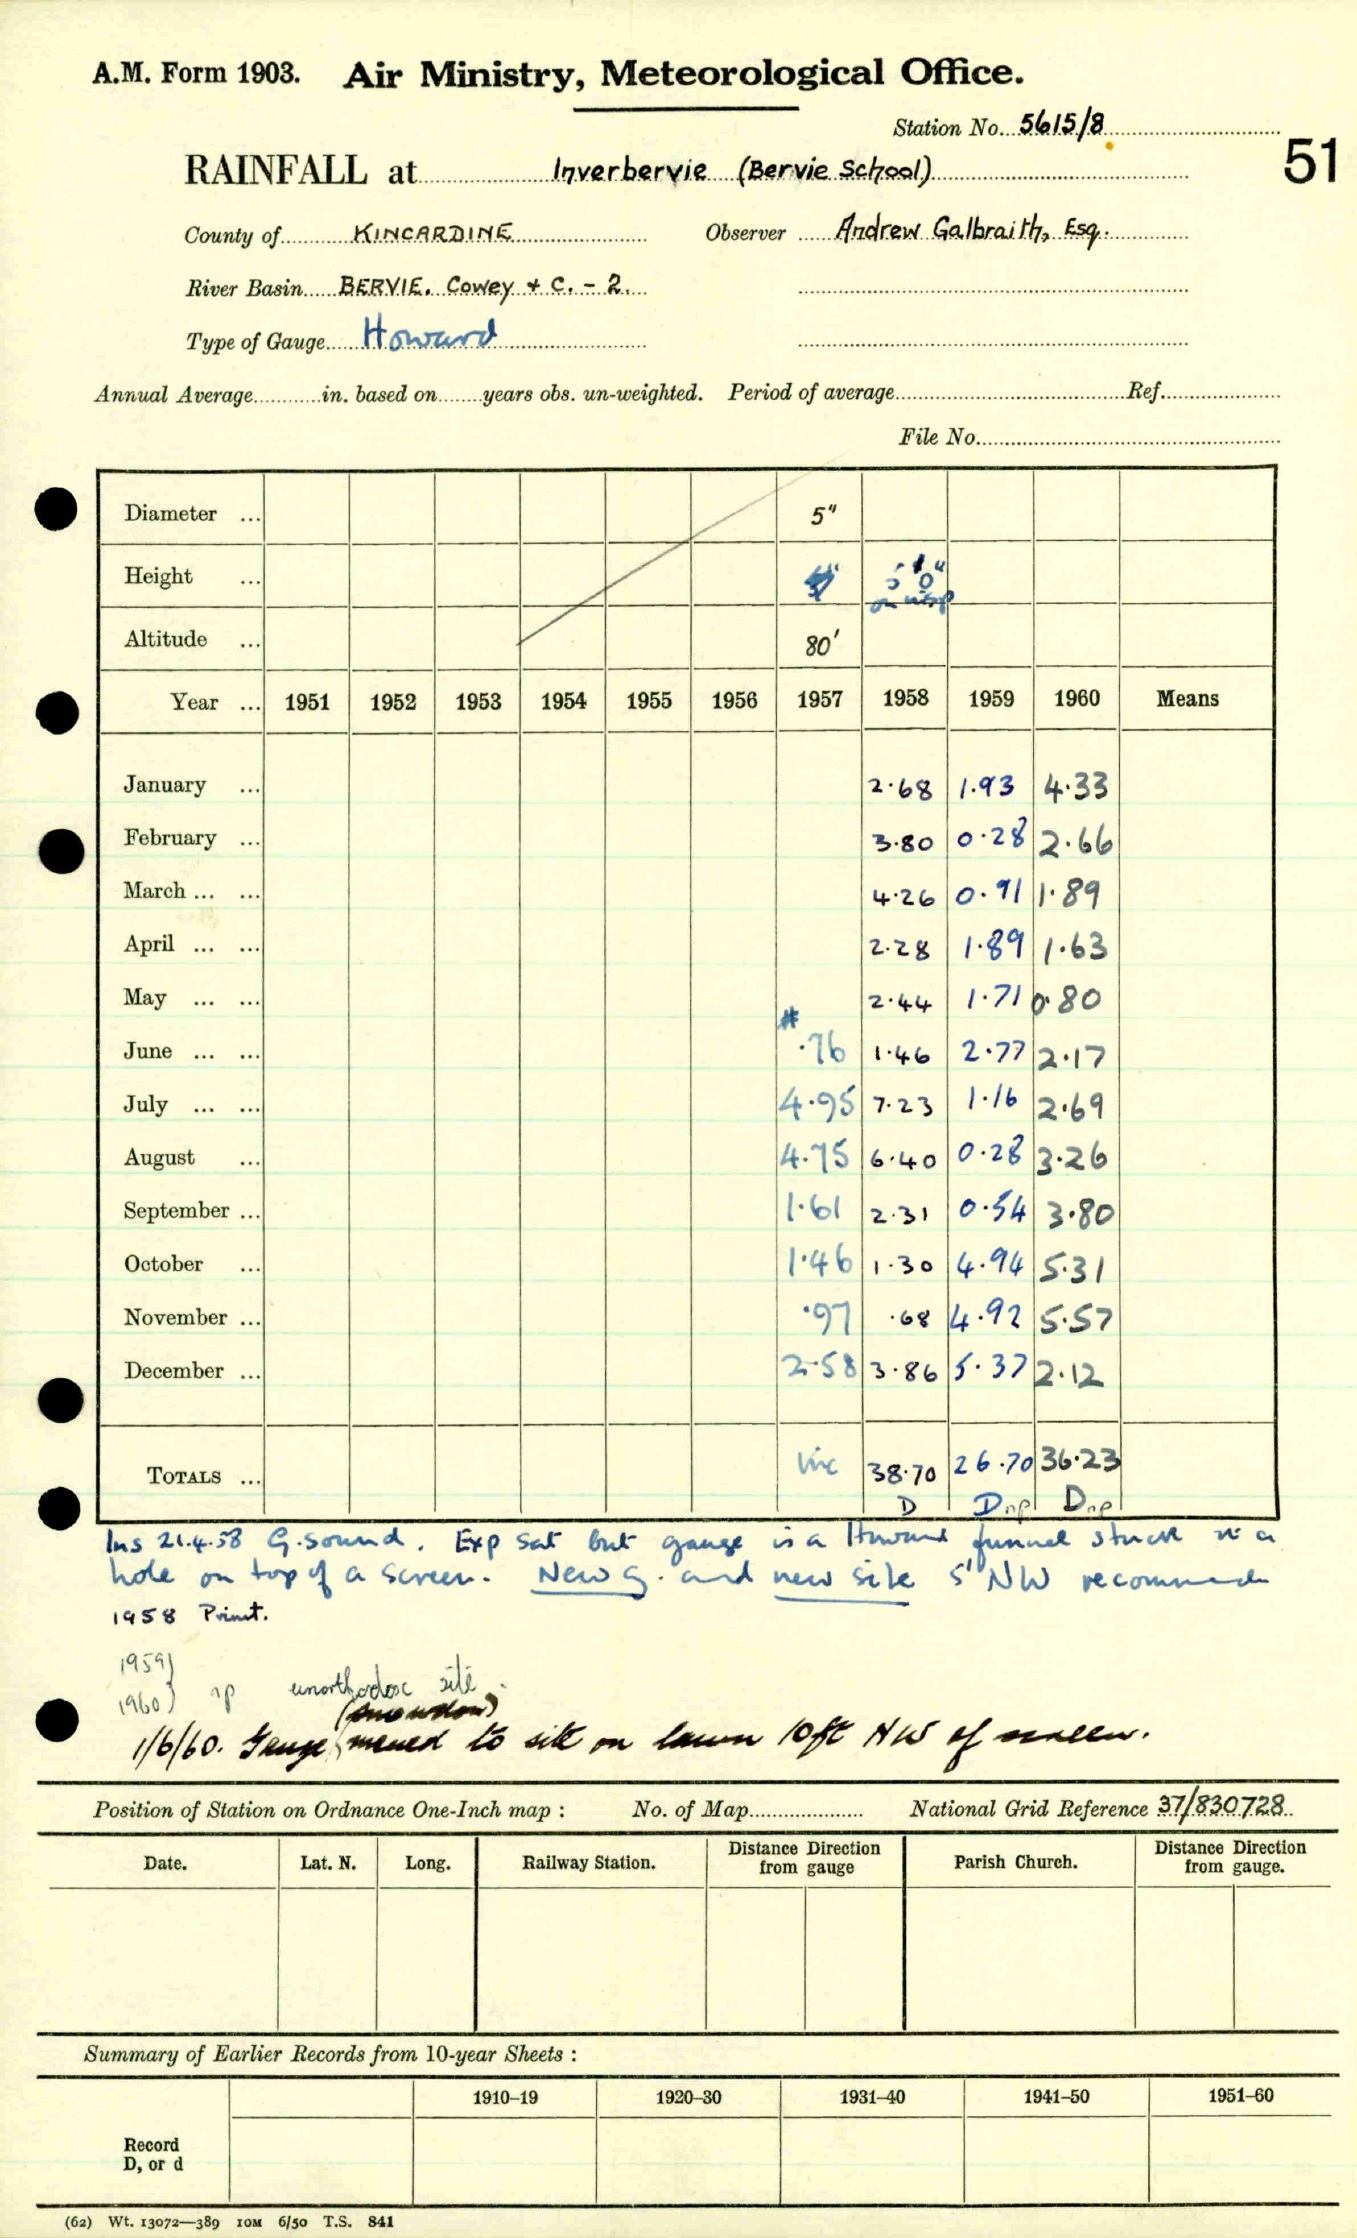 A.M. Form 1903. Air Ministry, Meteorological Office.
Station No. 5615/8
51
RAINFALL at Inverbervie (Bervie School)
County of KINCARDINE Observer Andrew Galbraith, Esq.
River Basin BERVIE. Cowey + C. - 2.
Type of Gauge Howard
Annual Average in. based on years obs. un-weighted. Period of average Ref.
File No.
Diameter ... 5"
Height ... 0" on
Altitude ... 80'
Year ... 1951 1952 1953 1954 1955 1956 1957 1958 1959 1960 Means
January ... 2.68 1.93 4.33
February ... 3.80 0.28 2.66
March ... ... 4.26 0.91 1.89
April ... ... 2.28 1.89 1.63
May ... ... 2.44 1.71 0.80
#
June ... ... .76 1.46 2.77 2.17
July ... ... 4.95 7.23 1.16 2.69
August ... 4.75 6.40 0.28 3.26
September ... 1.61 2.31 0.54 3.80
October ... 1.46 1.30 4.94 5.31
November ... .97 .68 4.92 5.57
December ... 2.58 3.86 5.37 2.12
TOTALS ... inc 38.70 26.70 36.23
D Dnp Dnp
Ins 21.4.58 G. sound. Exp sat but gauge is a Howard funnel stuck in a
hole on top of a screen. New G. and new site 5' NW recommend
1958 Print.
1959}
1960} np unorthodox site.
(Snowdon)
1/6/60. Gauge moved to site on lawn 10ft NW of screen.
Position of Station on Ordnance One-Inch map : No. of Map National Grid Reference 37/830728
Date. Lat. N. Long. Railway Station. Distance from gauge Direction Parish Church. Distance from gauge. Direction
Summary of Earlier Records from 10-year Sheets :
1910–19 1920–30 1931–40 1941–50 1951–60
Record
D, or d
(62) Wt. 13072—389 10M 6/50 T.S. 841